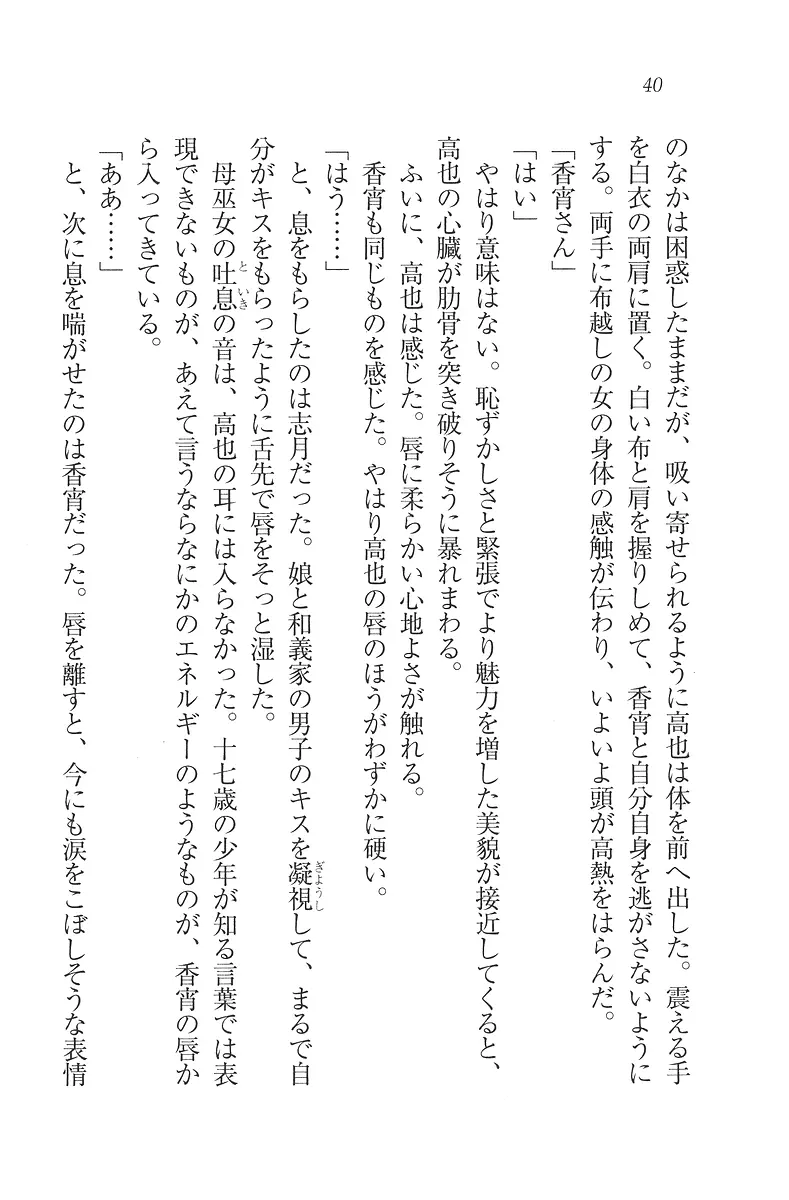 40
のなかは困惑したままだが、吸い寄せられるように高也は体を前へ出した。震える手
を白衣の両肩に置く。白い布と肩を握りしめて、香宵と自分自身を逃がさないように
する。両手に布越しの女の身体の感触が伝わり、いよいよ頭が高熱をはらんだ。
「香宵さん」
「はい」
やはり意味はない。恥ずかしさと緊張でより魅力を増した美貌が接近してくると、
高也の心臓が肋骨を突き破りそうに暴れまわる。
ふいに、高也は感じた。唇に柔らかい心地よさが触れる。
香宵も同じものを感じた。やはり高也の唇のほうがわずかに硬い。
「はう……」
と、息をもらしたのは志月だった。娘と和義家の男子のキスを凝視して、まるで自
ぎょうし
分がキスをもらったように舌先で唇をそっと湿した。
母巫女の吐息の音は、高也の耳には入らなかった。十七歳の少年が知る言葉では表
といき
現できないものが、あえて言うならなにかのエネルギーのようなものが、香宵の唇か
ら入ってきている。
「ああ……」
と、次に息を喘がせたのは香宵だった。唇を離すと、今にも涙をこぼしそうな表情